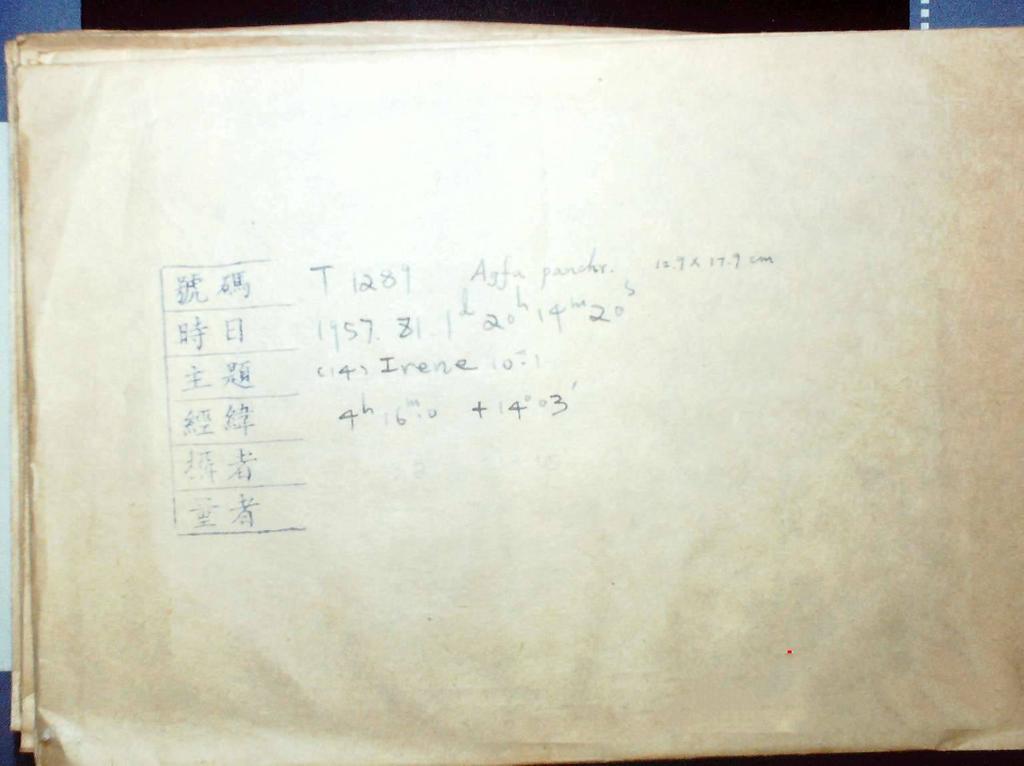 號碼 T 1289 Agfa panchr. 12.9 x 17.9 cm
時日 1957. 1. 1d 20h 14m 20s
主題 (14) Irene
經緯 4h 16m.0 +14° 03'
攝者
量者